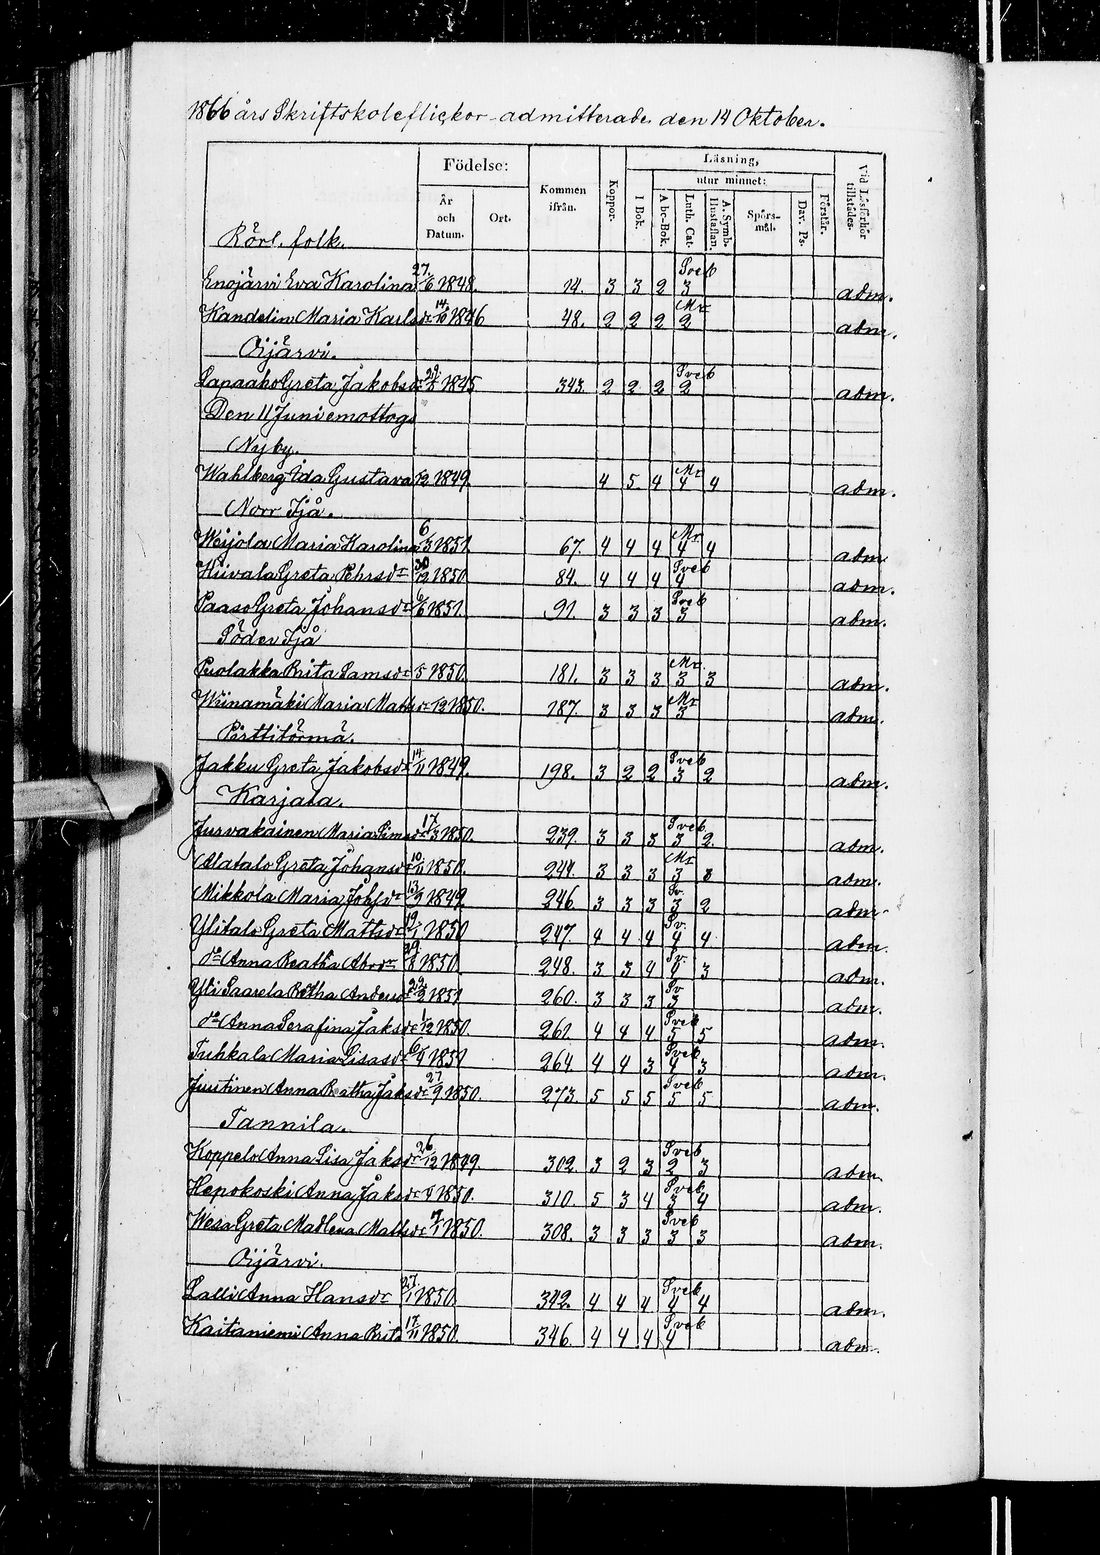 1866 års Skriftskoleflickor admitterade den 14 Oktober.
Födelse: Kommen ifrån. Koppor. Läsning, Vid Läsförhör tillstädes.
År och Datum. Ort. I Bok. utur minnet: Förstår.
A bc-Bok. Luth. Cat. A. Symb. Hustaflan. Spörsmål. Dav. Ps.
Rörl. folk.
Enojärvi Eva Karolina 27/6 1848. 14. 3 3 2 Sveb 3 adm.
Kandelin Maria Karlsdr 14/10 1846 48. 2 2 2 Mr 2 adm.
Oijärvi.
Lapaaho Greta Jakobsdr 1845 343. 2 2 2 Sveb 2 adm.
Den 11 Juni emottogs
Nyby.
Wahlberg Ida Gustava /12 1849. 4 5 4 Mr 4 4 adm.
Norr Ijå.
Weijola Maria Karolina 6/3 1851 67. 4 4 4 Mr 4 4 adm
Hiivala Greta Pehrsdr 30/12 1850 84. 4 4 4 Sveb 4 adm.
Paaso Greta Johansdr 1851. 91. 3 3 3 Sveb 3 adm.
Söder Ijå
Puolakka Brita Samsdr /5 1850. 181. 3 3 3 Mr. 3 3 adm.
Wiinamäki Maria Matsdr /12 1850. 187. 3 3 3 Mr 3 adm.
Pirttitörmä.
Jakku Greta Jakobsdr 14/11 1849. 198. 3 2 2 Sveb 3 2 adm.
Karjala.
Jurvakainen Maria Simsdr 17/3 1850. 239. 3 3 3 Sveb 3 2. adm.
Alatalo Greta Johansdr 10/11 1850. 244. 3 3 3 Mr 3 3 adm.
Mikkola Maria Johsdr 13/9 1849 246. 3 3 3 Sv. 3 2 adm
Ylitalo Greta Mattsdr 19/1 1850 247. 4 4 4 Sv. 4 4 adm.
do Anna Beatha Abrdr 1850. 248. 3 3 4 Sv. 4 3 adm.
Yli Saarela Betha Andersdr 1851 260. 3 3 3 Sv 3 adm.
do Anna Serafina Jaksdr 1/12 1850. 261. 4 4 4 Sveb 5 5 adm.
Tuhkala Maria Lisa 1851 264. 4 4 3 Sveb 4 3 adm.
Juutinen Anna Beatha Jaksdr 27/9 1850. 273. 5 5 5 Sveb 5 5 adm.
Tannila.
Koppelo Anna Lisa Jaksdr 26/12 1849. 302. 3 2 3 Sveb 2 3 adm
Hepokoski Anna Jaksdr 1850. 310. 5 3 4 Sveb 3 4 adm.
Wesa Greta Madlena Mattsdr 1850. 308. 3 3 3 Sveb 3 3 adm.
Oijärvi.
Lalli Anna Hansdr 27/1 1850. 342. 4 4 4 Sveb 4 4 adm.
Kaitaniemi Anna Brita 17/11 1850. 346. 4 4 4 Sveb 4 adm.